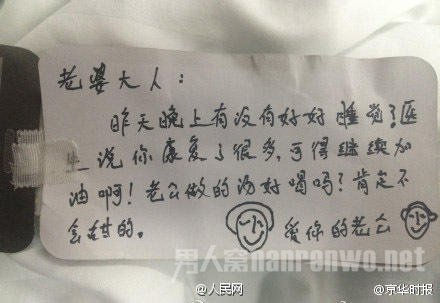 老婆大人：
昨天晚上有没有好好睡觉？医
生说你康复了很多，可得继续加
油啊！老公做的汤好喝吗？肯定不
会甜的。
爱你的老公
男人窝nanrenwo.net
@人民网
@京华时报